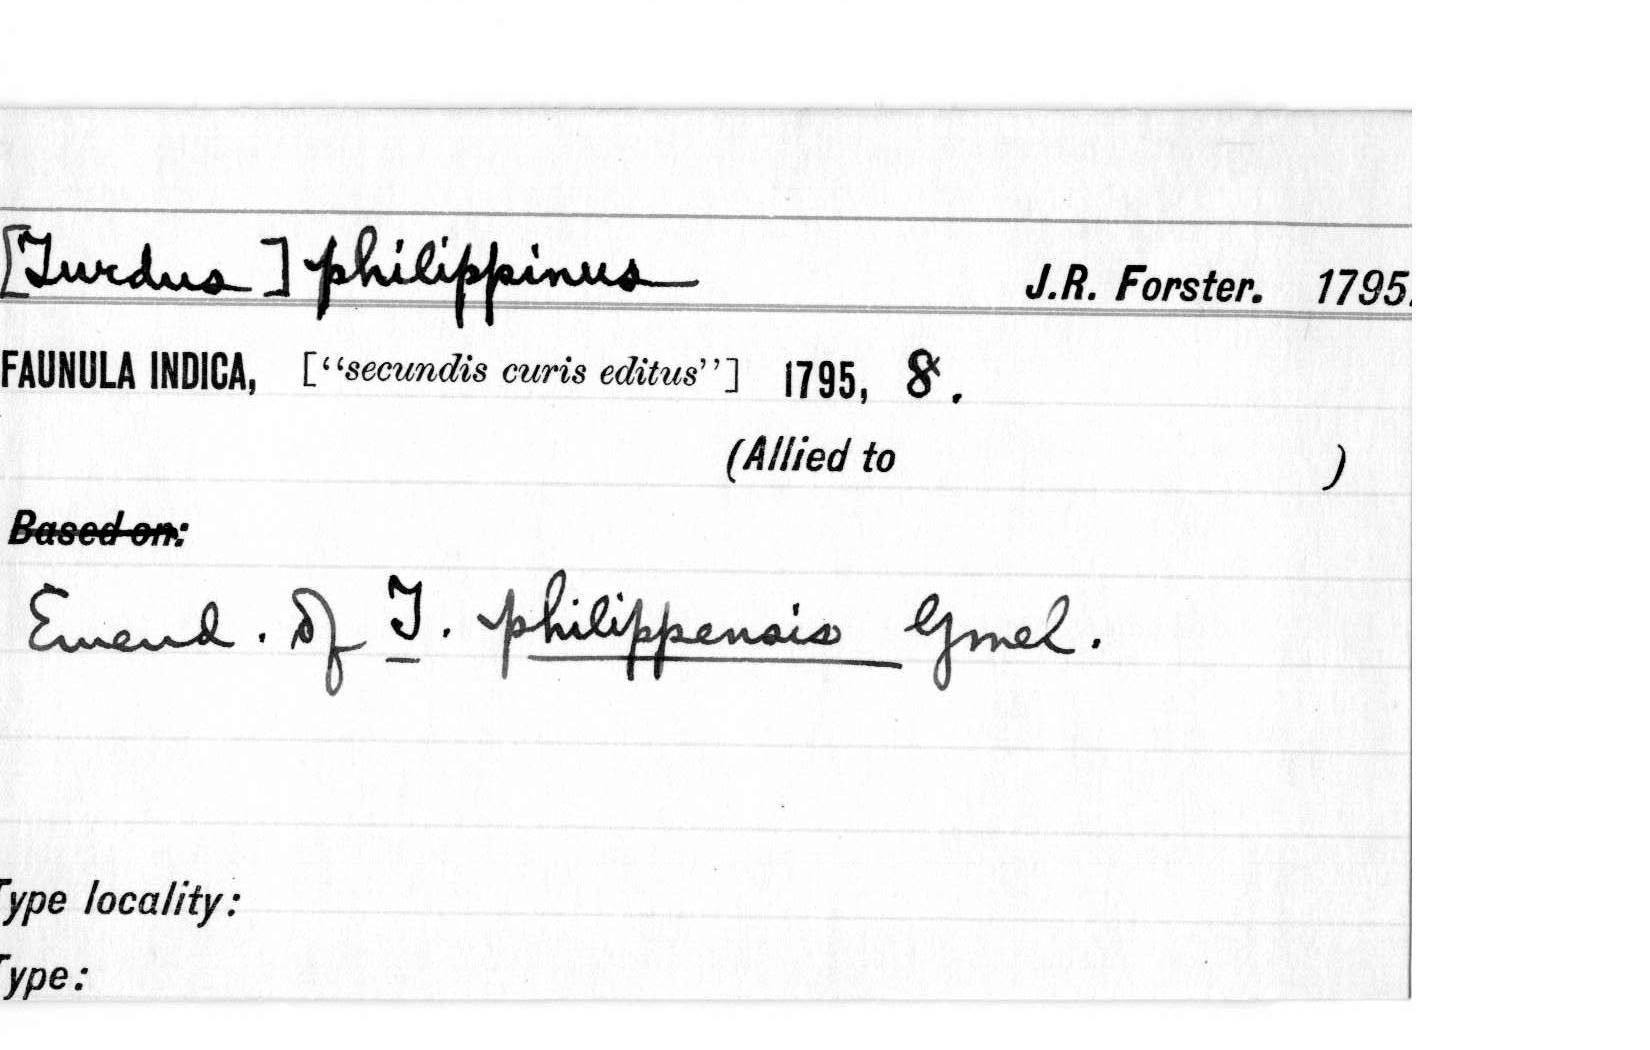 [Turdus] philippinus J.R. Forster. 1795.
FAUNULA INDICA, [“secundis curis editus”] 1795, 8.
(Allied to )
Based on:
Emend. of T. philippensis Gmel.
Type locality:
Type: